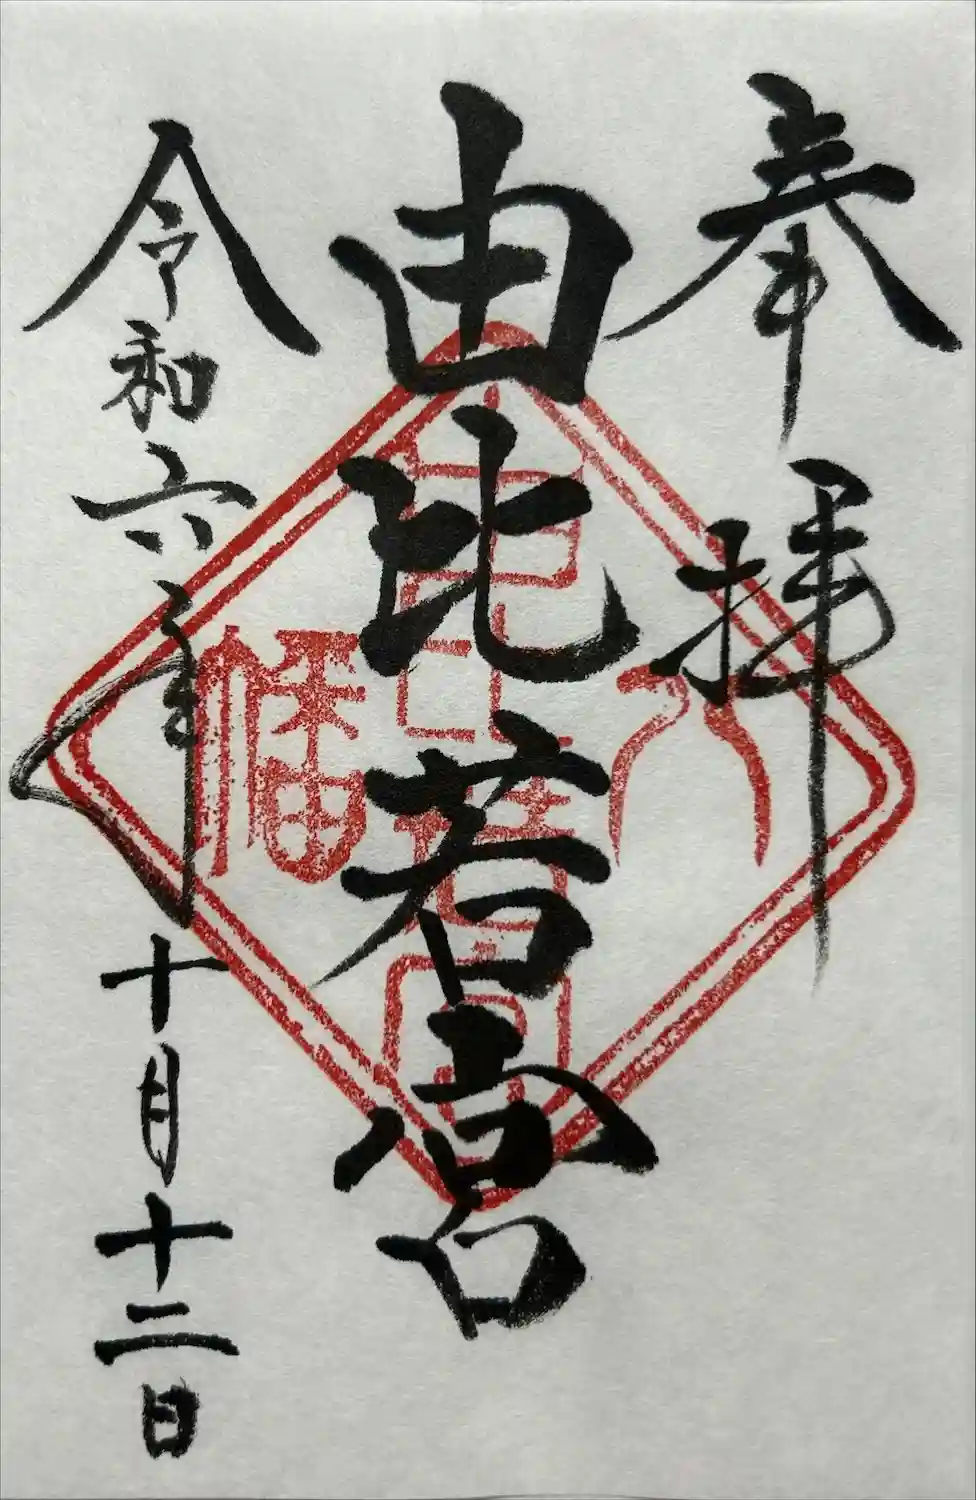 奉拝
由比若宮
令和六年十月十二日
八幡